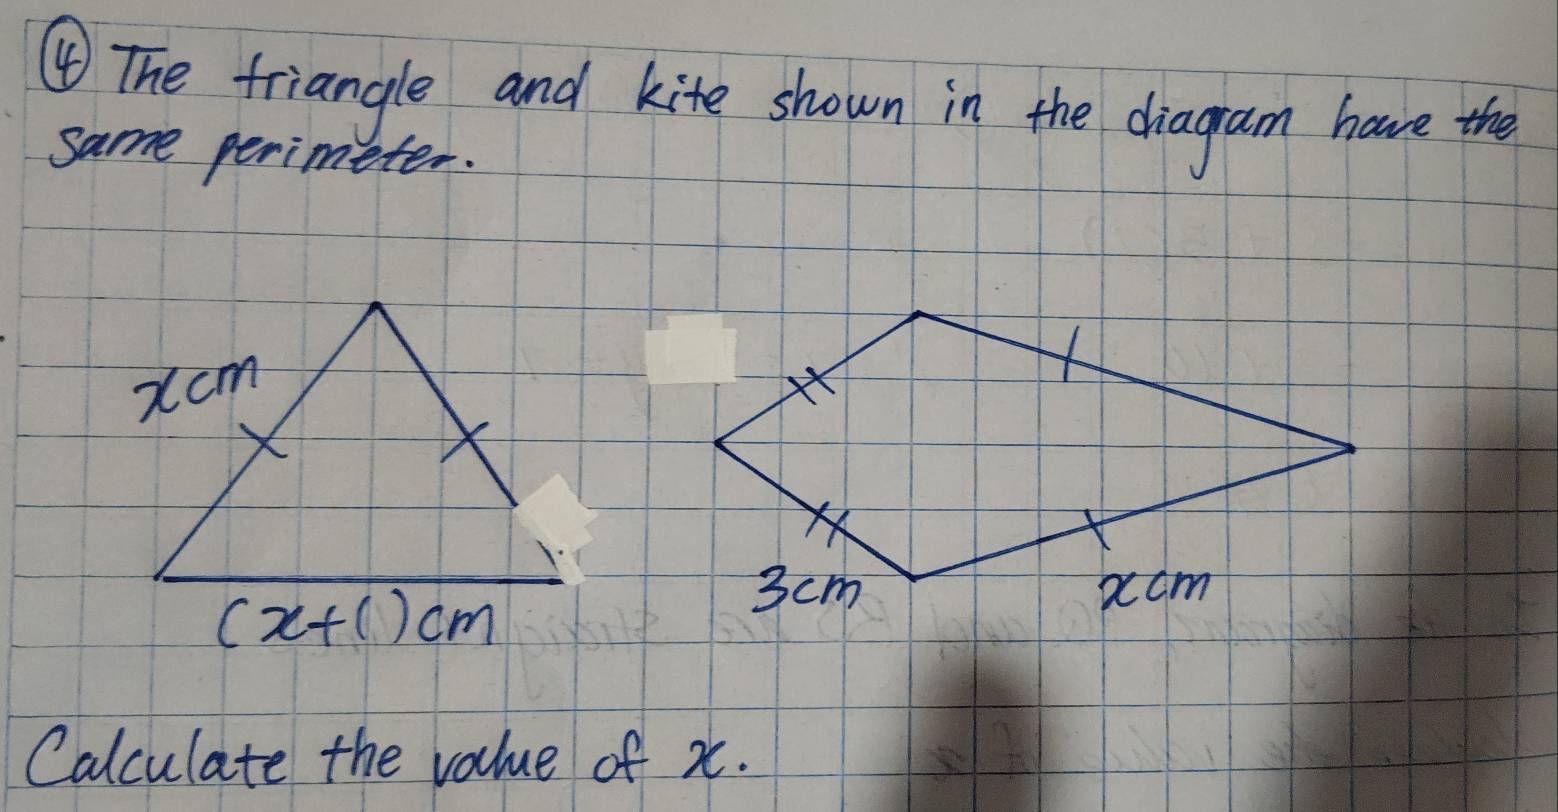 ④ The triangle and kite shown in the diagram have the
same perimeter.
x cm
(x+1)cm
3cm
x cm
Calculate the value of x.